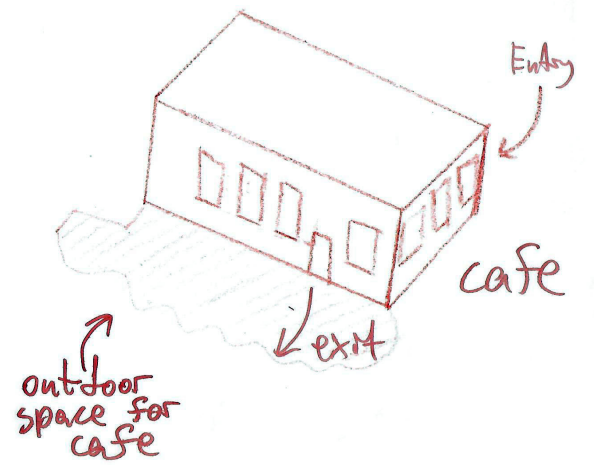 Entry
cafe
exit
outdoor
space for
cafe